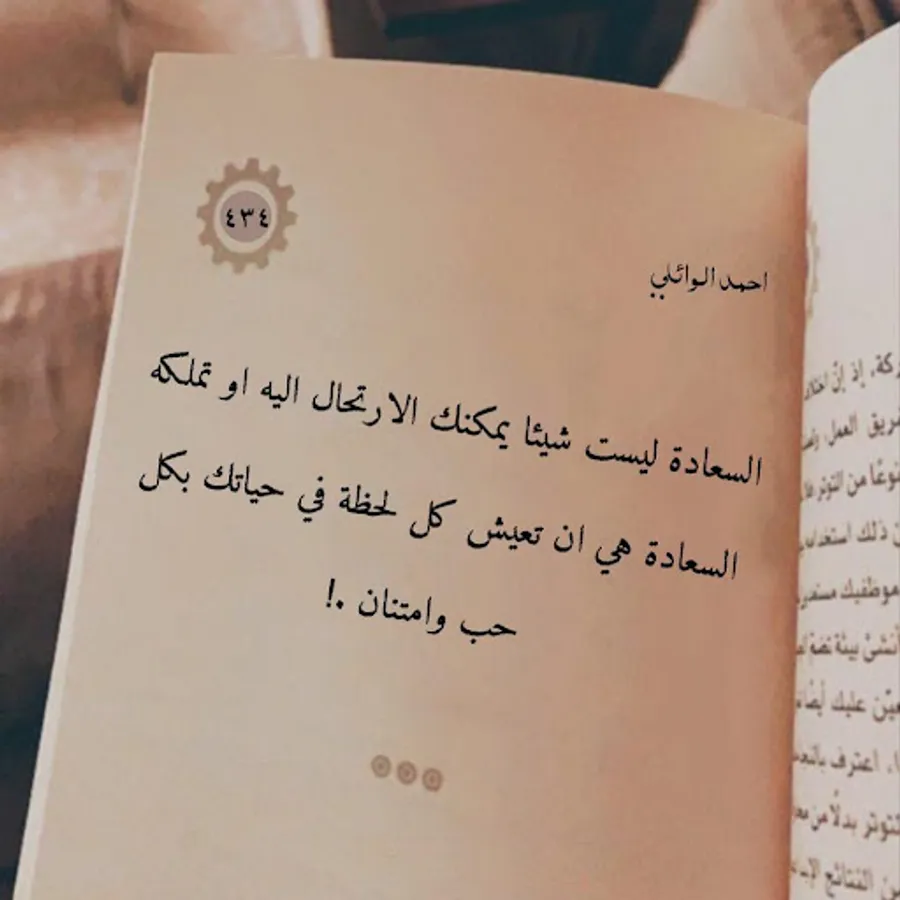 ٤٣٤
احمد الوائلي
السعادة ليست شيئا يمكنك الارتحال اليه او تملكه
السعادة هي ان تعيش كل لحظة في حياتك بكل
حب وامتنان .!
ركة، إذ إنّ
فريق العمل،
نوعًا من التوتر
ن ذلك
موظفيك
أنشئ بيئة تضمّ
عيّن عليك أيضًا
ا، اعترف
لتوتر بدلًا من
من النتائج